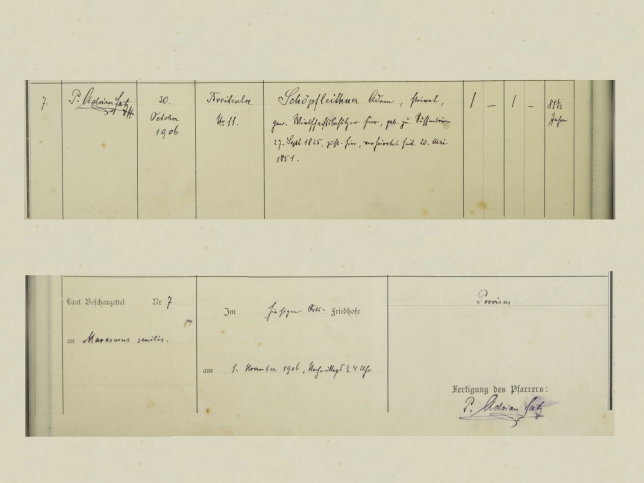 7.
P. Adrian Gatz
30.
October
1906.
Nr. 11.
Schöpfleithner Adam, privat,
gew. Wirthschaftsbesitzer hier, geb. zu
27. Sept 1825, zust. hier, verheiratet seit 20. Mai
1851.
1 – 1 –
81½
Jahr
Laut Beschauzettel Nr. 7
an Marasmus senilis.
Im hiesigen Orts- Friedhofe
am 1. November 1906, Nachmittags ½ 4 Uhr
Provisus
Fertigung des Pfarrers:
P. Adrian Gatz